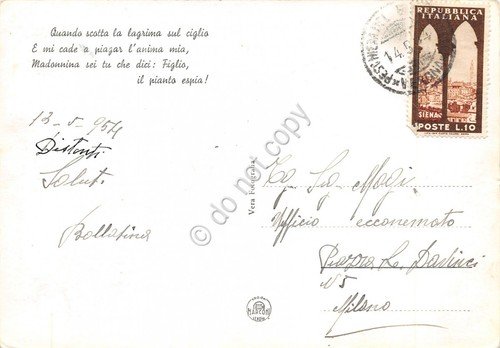 Quando scotta la lagrima sul ciglio
E mi cade a piagar l'anima mia,
Madonnina sei tu che dici: Figlio,
il pianto espia!
REPUBBLICA
ITALIANA
SIENA
POSTE L.10
13-5-954
Distinti
Saluti
Vera Fotografia
do not copy
Sig Magi
Ufficio economato
Piazza L. Davinci
N5
Milano
MARCONI